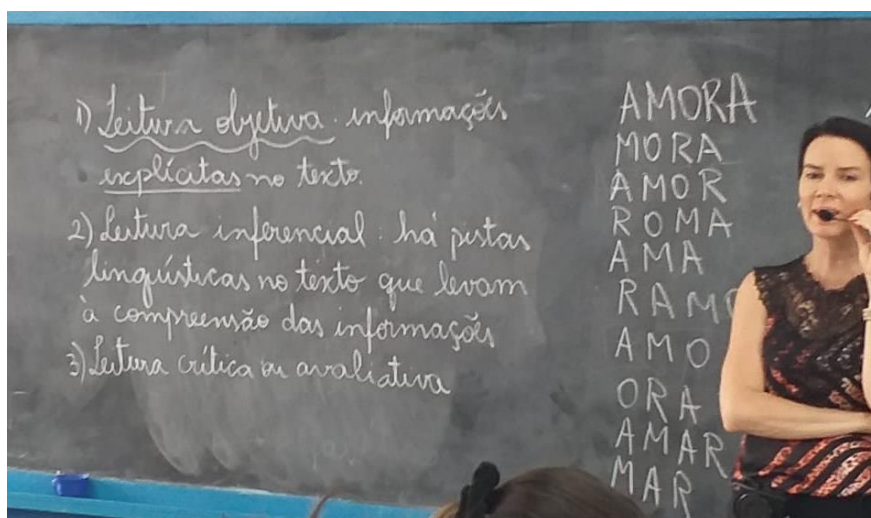 1) Leitura objetiva: informações
explícitas no texto.
2) Leitura inferencial: há pistas
linguísticas no texto que levam
à compreensão das informações
3) Leitura crítica ou avaliativa
AMORA
MORA
AMOR
ROMA
AMA
RAMO
AMO
ORA
AMAR
MAR